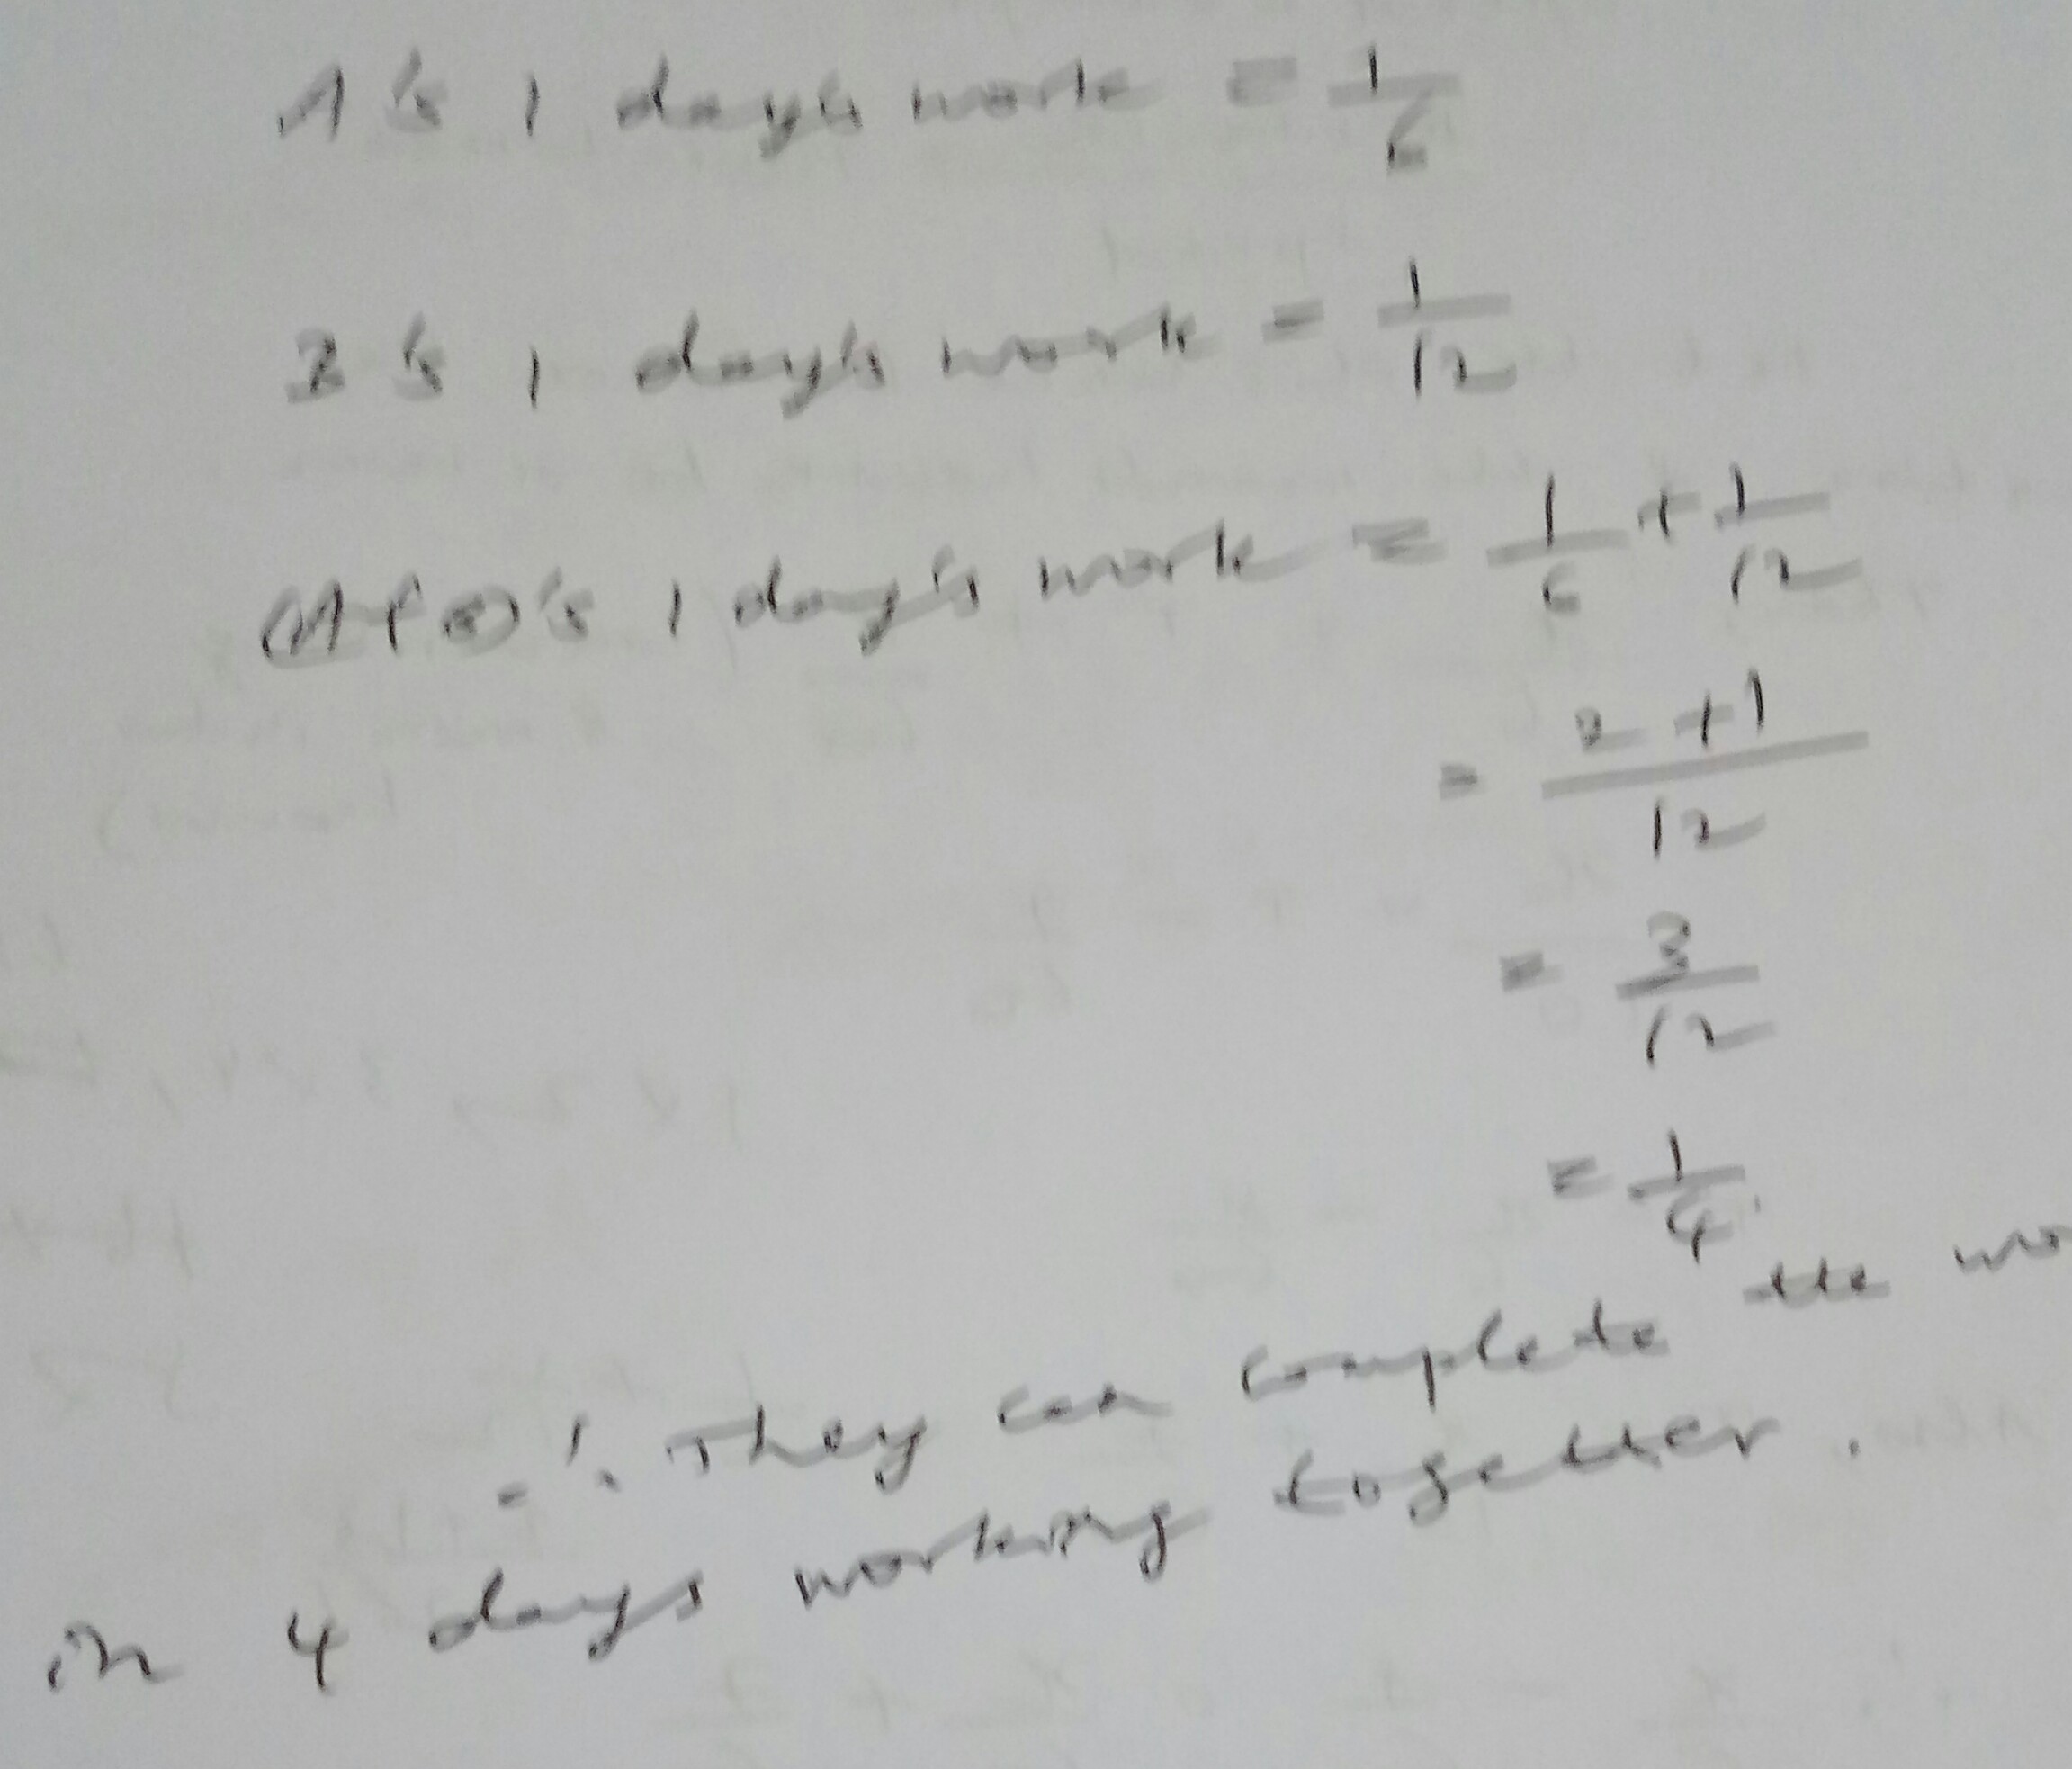 A's 1 day's work = 1/6
B's 1 day's work = 1/12
(A+B)'s 1 day's work = 1/6 + 1/12
= 2+1/12
= 3/12
= 1/4
∴ They can complete the wo
in 4 days working together.